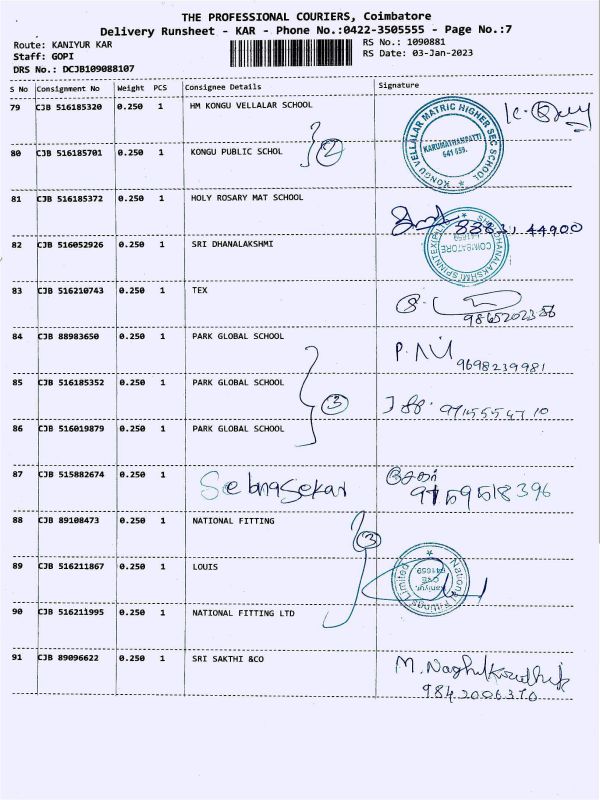 THE PROFESSIONAL COURIERS, Coimbatore
Delivery Runsheet - KAR - Phone No.:0422-3505555 - Page No.:7
Route: KANIYUR KAR
Staff: GOPI
DRS No.: DCJB109088107
RS No.: 1090881
RS Date: 03-Jan-2023
S No Consignment No Weight PCS Consignee Details Signature
79 CJB 516185320 0.250 1 HM KONGU VELLALAR SCHOOL
KONGU VELLALAR MATRIC HIGHER SEC SCHOOL
KARUMATHAMPATTI
641 659.
80 CJB 516185701 0.250 1 KONGU PUBLIC SCHOL
2
81 CJB 516185372 0.250 1 HOLY ROSARY MAT SCHOOL
44900
82 CJB 516052926 0.250 1 SRI DHANALAKSHMI
COIMBATORE
641659
83 CJB 516210743 0.250 1 TEX
84 CJB 88983650 0.250 1 PARK GLOBAL SCHOOL
9698239981
85 CJB 516185352 0.250 1 PARK GLOBAL SCHOOL
3
86 CJB 516019879 0.250 1 PARK GLOBAL SCHOOL
87 CJB 515882674 0.250 1
9159518396
88 CJB 89108473 0.250 1 NATIONAL FITTING
3
89 CJB 516211867 0.250 1 LOUIS
National Fittings Limited
Kaniyur,
CBE
641659
90 CJB 516211995 0.250 1 NATIONAL FITTING LTD
91 CJB 89096622 0.250 1 SRI SAKTHI &CO
9842006370